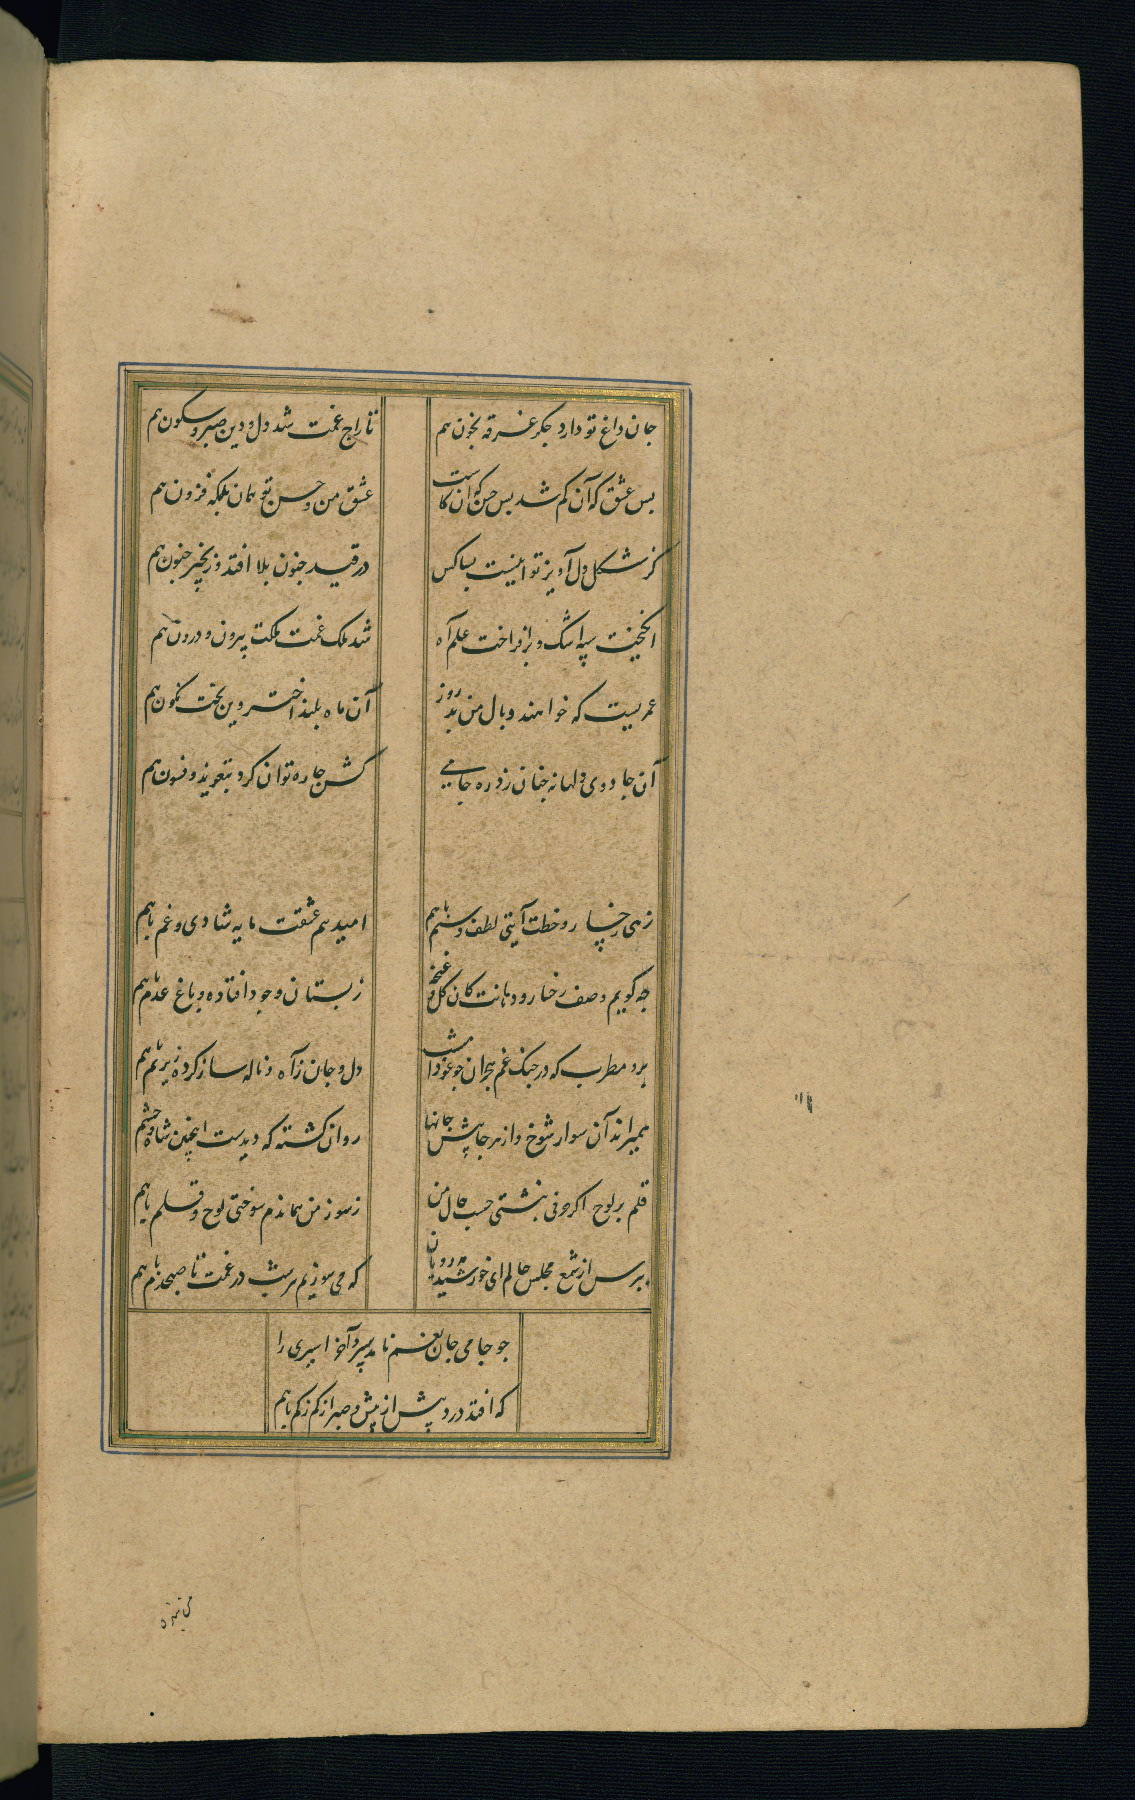 جان داغ تو دارد جکر غرقه بخون هم تاراج غمت شد دل و دین صبر و سکون هم
بس عشق که آن کم شد بس حسن که آن کاست عشق من و حسن تو همان بلکه فزون هم
کر شکل دل آویز تو اینست بسا کس در قید جنون بلا افتد و زنجیر جنون هم
انکیخت سپه اشک و برافراخت علم آه شد ملک غمت مملکت بیرون و درون هم
عمریست که خواهند وبال من بد روز آن ماه بلند اختر و این بخت نکون هم
آن جادوی دلها نه چنان زد ره جامی کش چاره توان کرد بتعویذ و فسون هم
زهی رخسار و خطت آیتی لطف و ستم باهم امید هم عشقت مایه شادی و غم باهم
چه کویم وصف رخسار و دهانت کان کل و غنچه زبستان وجود افتاده و باغ عدم باهم
برو مطرب که در چنک غم هجران چو عود امشب دل و جان ز آه و ناله ساز کرده زیر و بم باهم
همیراند آن سوار شوخ و از هر جا پیش جانها روان کشته که دیدست اینچنین شاه و حشم باهم
قلم بر لوح اکر حرفی بنشتی حسب حال من زسوز من هماندم سوختی لوح و قلم باهم
بپرس از شمع مجلس حالم ای خورشید مه رویان که می سوزیم هر شب در غمت تا صبحدم باهم
چو جامی جان بغم نامد سپرد آخر اسیری را
که افتد درد بیش از بیش و صبر از کم زکم باهم